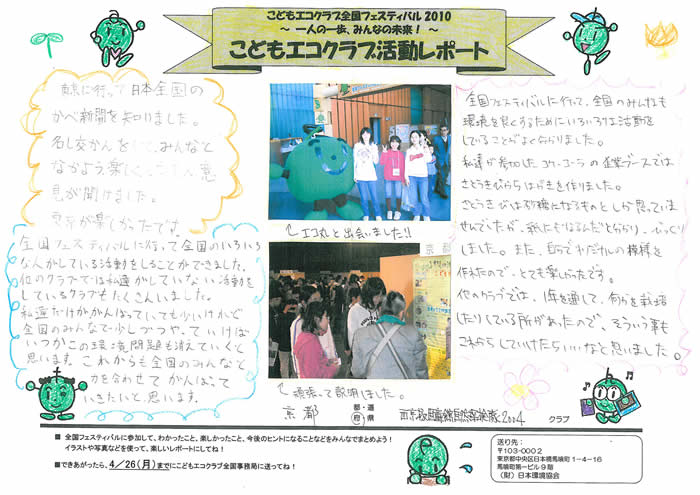 こどもエコクラブ全国フェスティバル2010
～ 一人の一歩、みんなの未来！ ～
こどもエコクラブ活動レポート
東京に行って日本全国の
かべ新聞を知りました。
名し交かんをして、みんなと
なかよう楽
見が聞けました。
東京が楽しかったです。
全国フェスティバルに行って全国のいろいろ
な人がしている活動をしることができました。
他のクラブでは私達がしていない活動を
しているクラブもたくさんいました。
私達だけががんばっていても少しいけれど
全国のみんなで少しづつやっていけば
いつかこの環境問題も消えていくと
思います。これからも全国のみんなと
力を合わせてがんばって
いきたいと思います。
エコ丸と出会いました!!
頑張って説明しました。
全国フェスティバルに行って、全国のみんなも
環境を良くするためにいろいろな活動を
していることがよく分かりました。
私達が参加したコカ・コーラの企業ブースでは、
さとうきびからはがきを作りました。
さとうきびは砂糖になるものとしか思っていま
せんでしたが、紙にもなるんだと分かり、びっくり
しました。また、自分でわだけの模様を
作れたので、とても楽しかったです。
他のクラブでは、1年を通して、何かを栽培
したりしている所があったので、そういう事も
これからしていけたらいいなと思いました。
京都
都・道
府・県
2004
クラブ
■ 全国フェスティバルに参加して、わかったこと、楽しかったこと、今後のヒントになることなどをみんなでまとめよう！
イラストや写真などを使って、楽しいレポートにしてね！
■できあがったら、4／26（月）までにこどもエコクラブ全国事務局に送ってね！
送り先：
〒103-0002
東京都中央区日本橋馬喰町1-4-16
馬喰町第一ビル9階
（財）日本環境協会